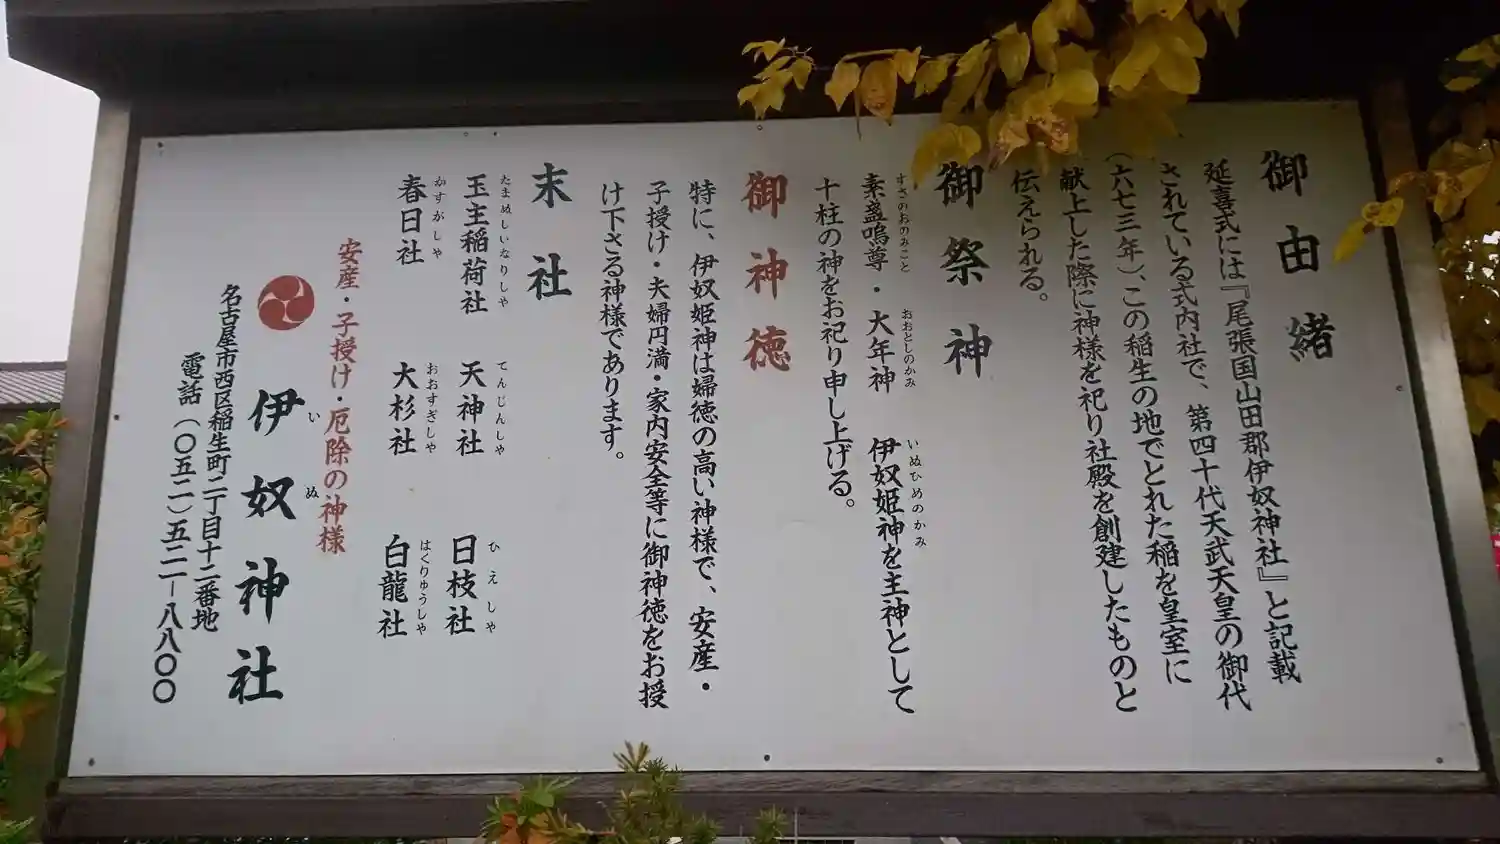 御由緒
延喜式には『尾張国山田郡伊奴神社』と記載
されている式内社で、第四十代天武天皇の御代
(六七三年)、この稲生の地でとれた稲を皇室に
献上した際に神様を祀り社殿を創建したものと
伝えられる。
御祭神
すさのおのみこと おおとしのかみ いぬひめのかみ
素盞嗚尊・大年神 伊奴姫神を主神として
十柱の神をお祀り申し上げる。
御神徳
特に、伊奴姫神は婦徳の高い神様で、安産・
子授け・夫婦円満・家内安全等に御神徳をお授
け下さる神様であります。
末社
たまぬしいなりしゃ てんじんしゃ ひえしゃ
玉主稲荷社 天神社 日枝社
かすがしゃ おおすぎしゃ はくりゅうしゃ
春日社 大杉社 白龍社
安産・子授け・厄除の神様
いぬ
伊奴神社
名古屋市西区稲生町二丁目十二番地
電話(〇五二)五二一ー八八〇〇